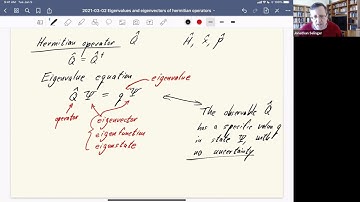 9:41 AM Tue Jan 5
2021-03-02 Eigenvalues and eigenvectors of hermitian operators
Hermitian operator Q̂
Ĥ, x̂, p̂
Q̂ = Q̂†
Eigenvalue equation
eigenvalue
Q̂ Ψ = q Ψ
operator
eigenvector
eigenfunction
eigenstate
The observable Q̂
has a specific value q
in state Ψ, with
no uncertainty
Jonathan Selinger